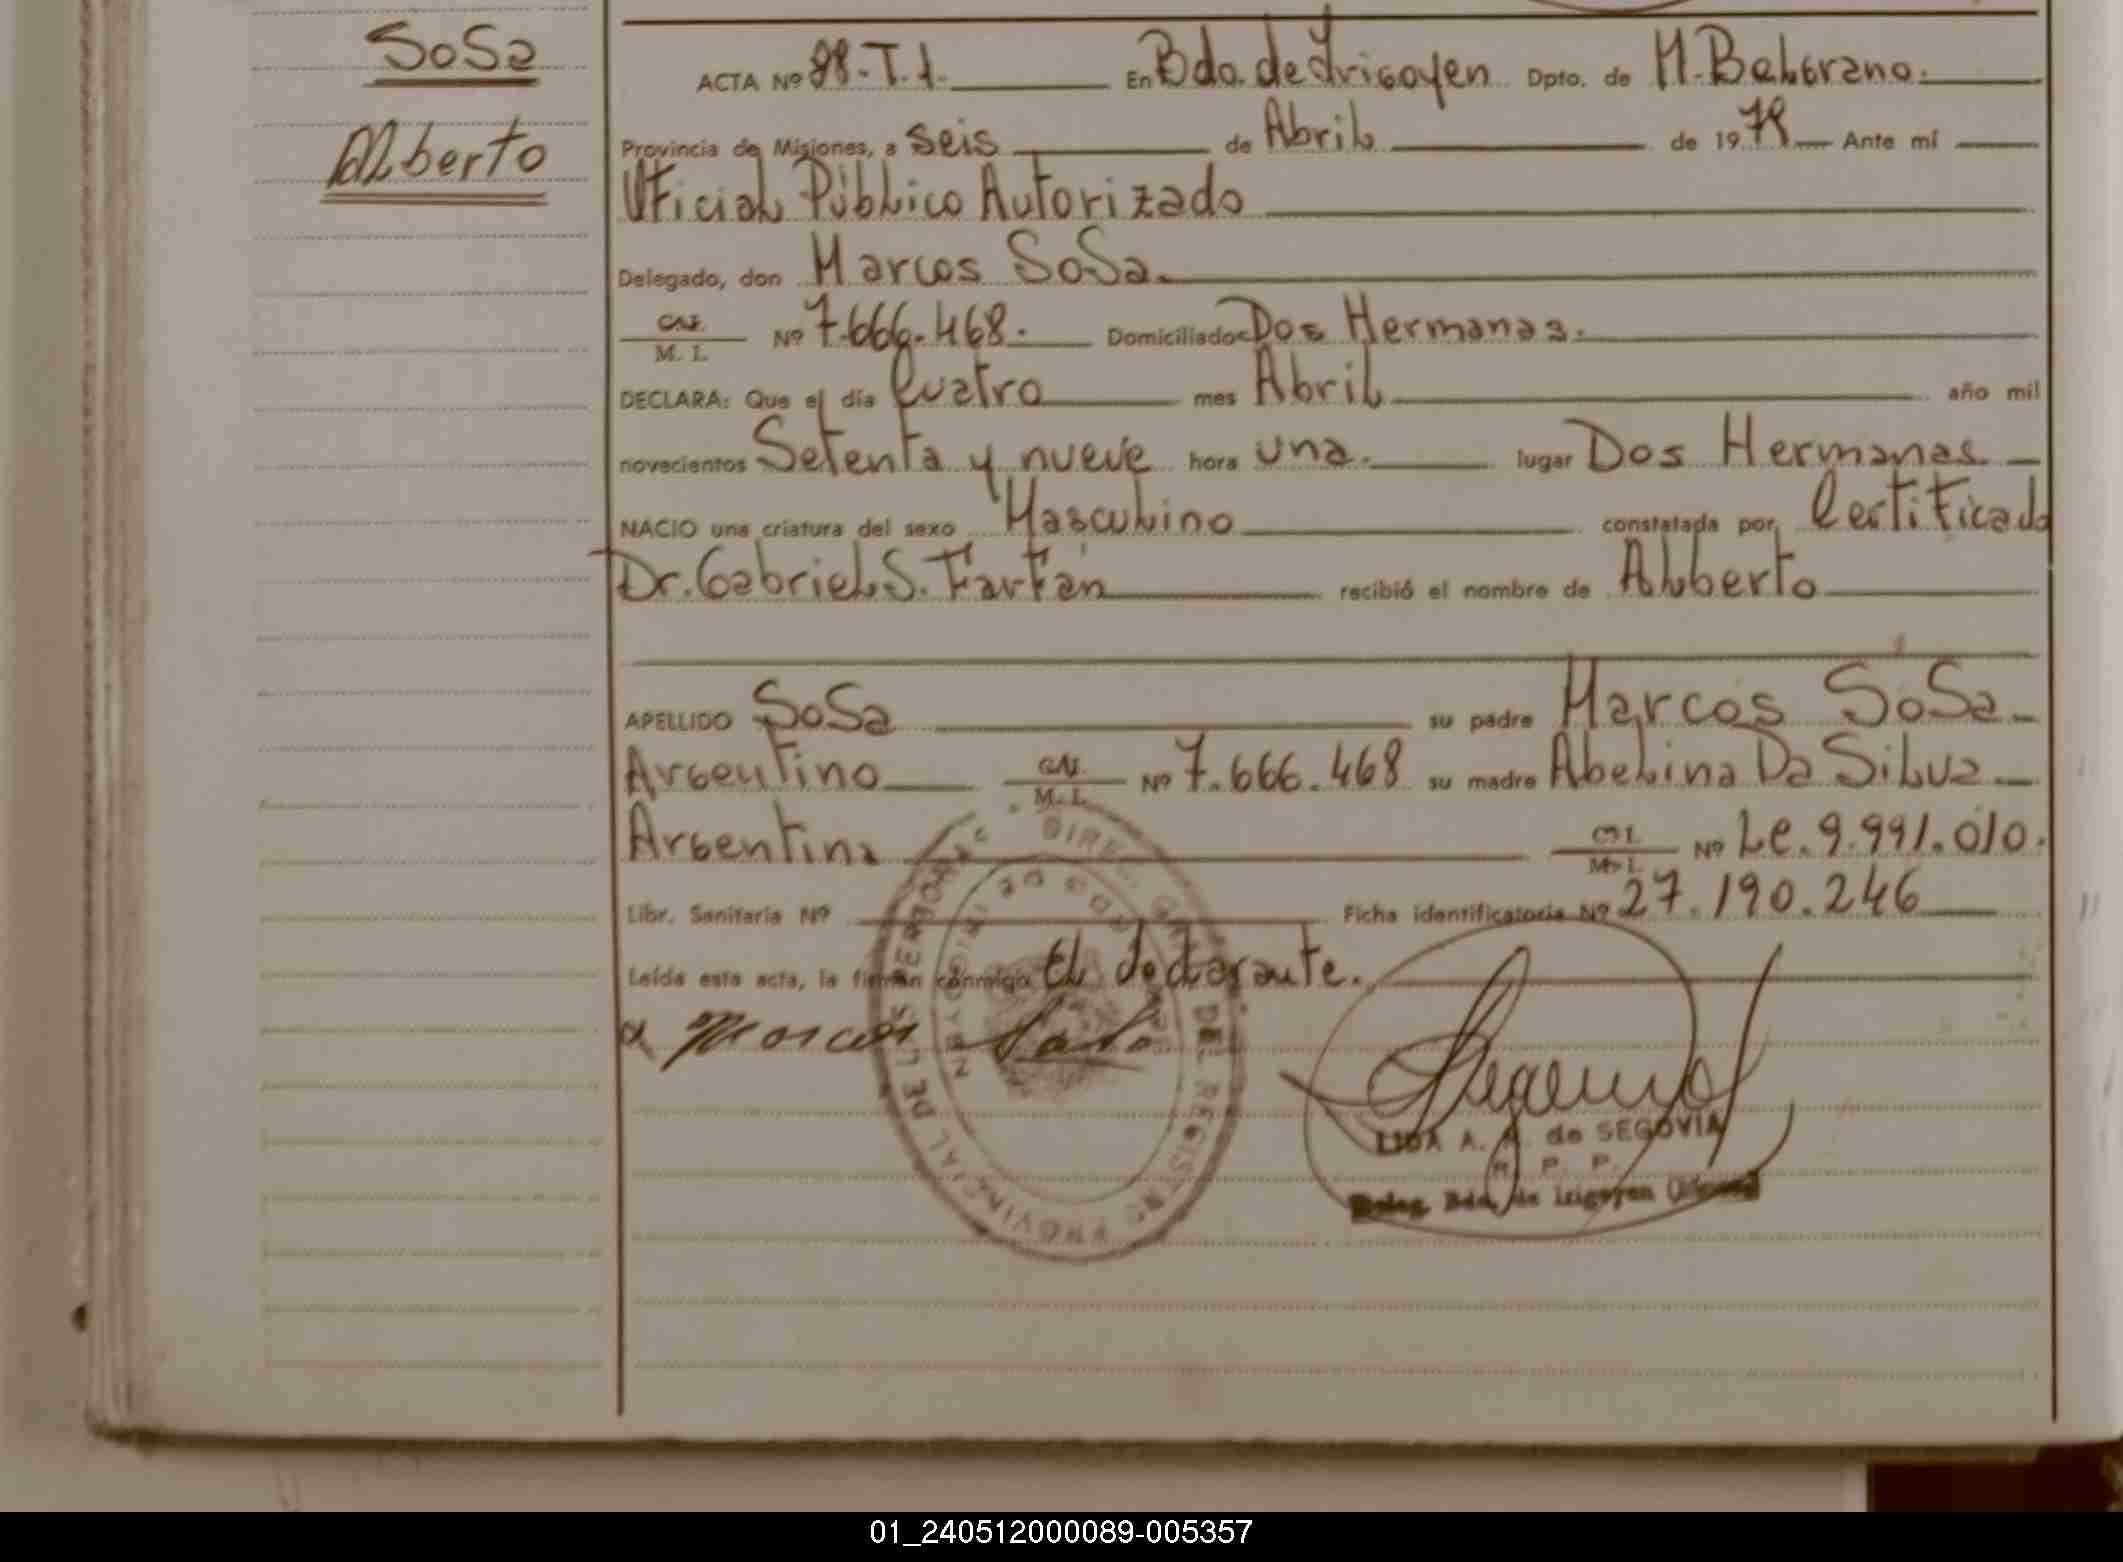 SoSa
Alberto
ACTA Nº 98-T.1. En Bdo. de Irigoyen Dpto. de M. Belgrano.
Provincia de Misiones, a seis de Abril de 1979 Ante mí
Oficial Público Autorizado
Delegado, don Marcos SoSa.
M. I. Nº 7.666.468. Domiciliado Dos Hermanas.
DECLARA: Que el día Cuatro mes Abril año mil
novecientos Setenta y nueve hora una. lugar Dos Hermanas
NACIO una criatura del sexo Masculino constatada por Certificado
Dr. Gabriel S. Farfán recibió el nombre de Alberto
APELLIDO SoSa su padre Marcos SoSa
Argentino M. I. Nº 7.666.468 su madre Abelina Da Silva
Argentina M. I. Nº Le. 9.991.010.
Libr. Sanitaria Nº Ficha identificatoria Nº 27.190.246
Leída esta acta, la firman conmigo el declarante.
Marcos Sosa
DIREC. GRAL. DEL REGISTRO PROVINCIAL DE LAS PERSONAS
BDO DE IRIGOYEN
LIDA A. de SEGOVIA
R. P. P.
Deleg. Bdo. de Irigoyen
01_240512000089-005357